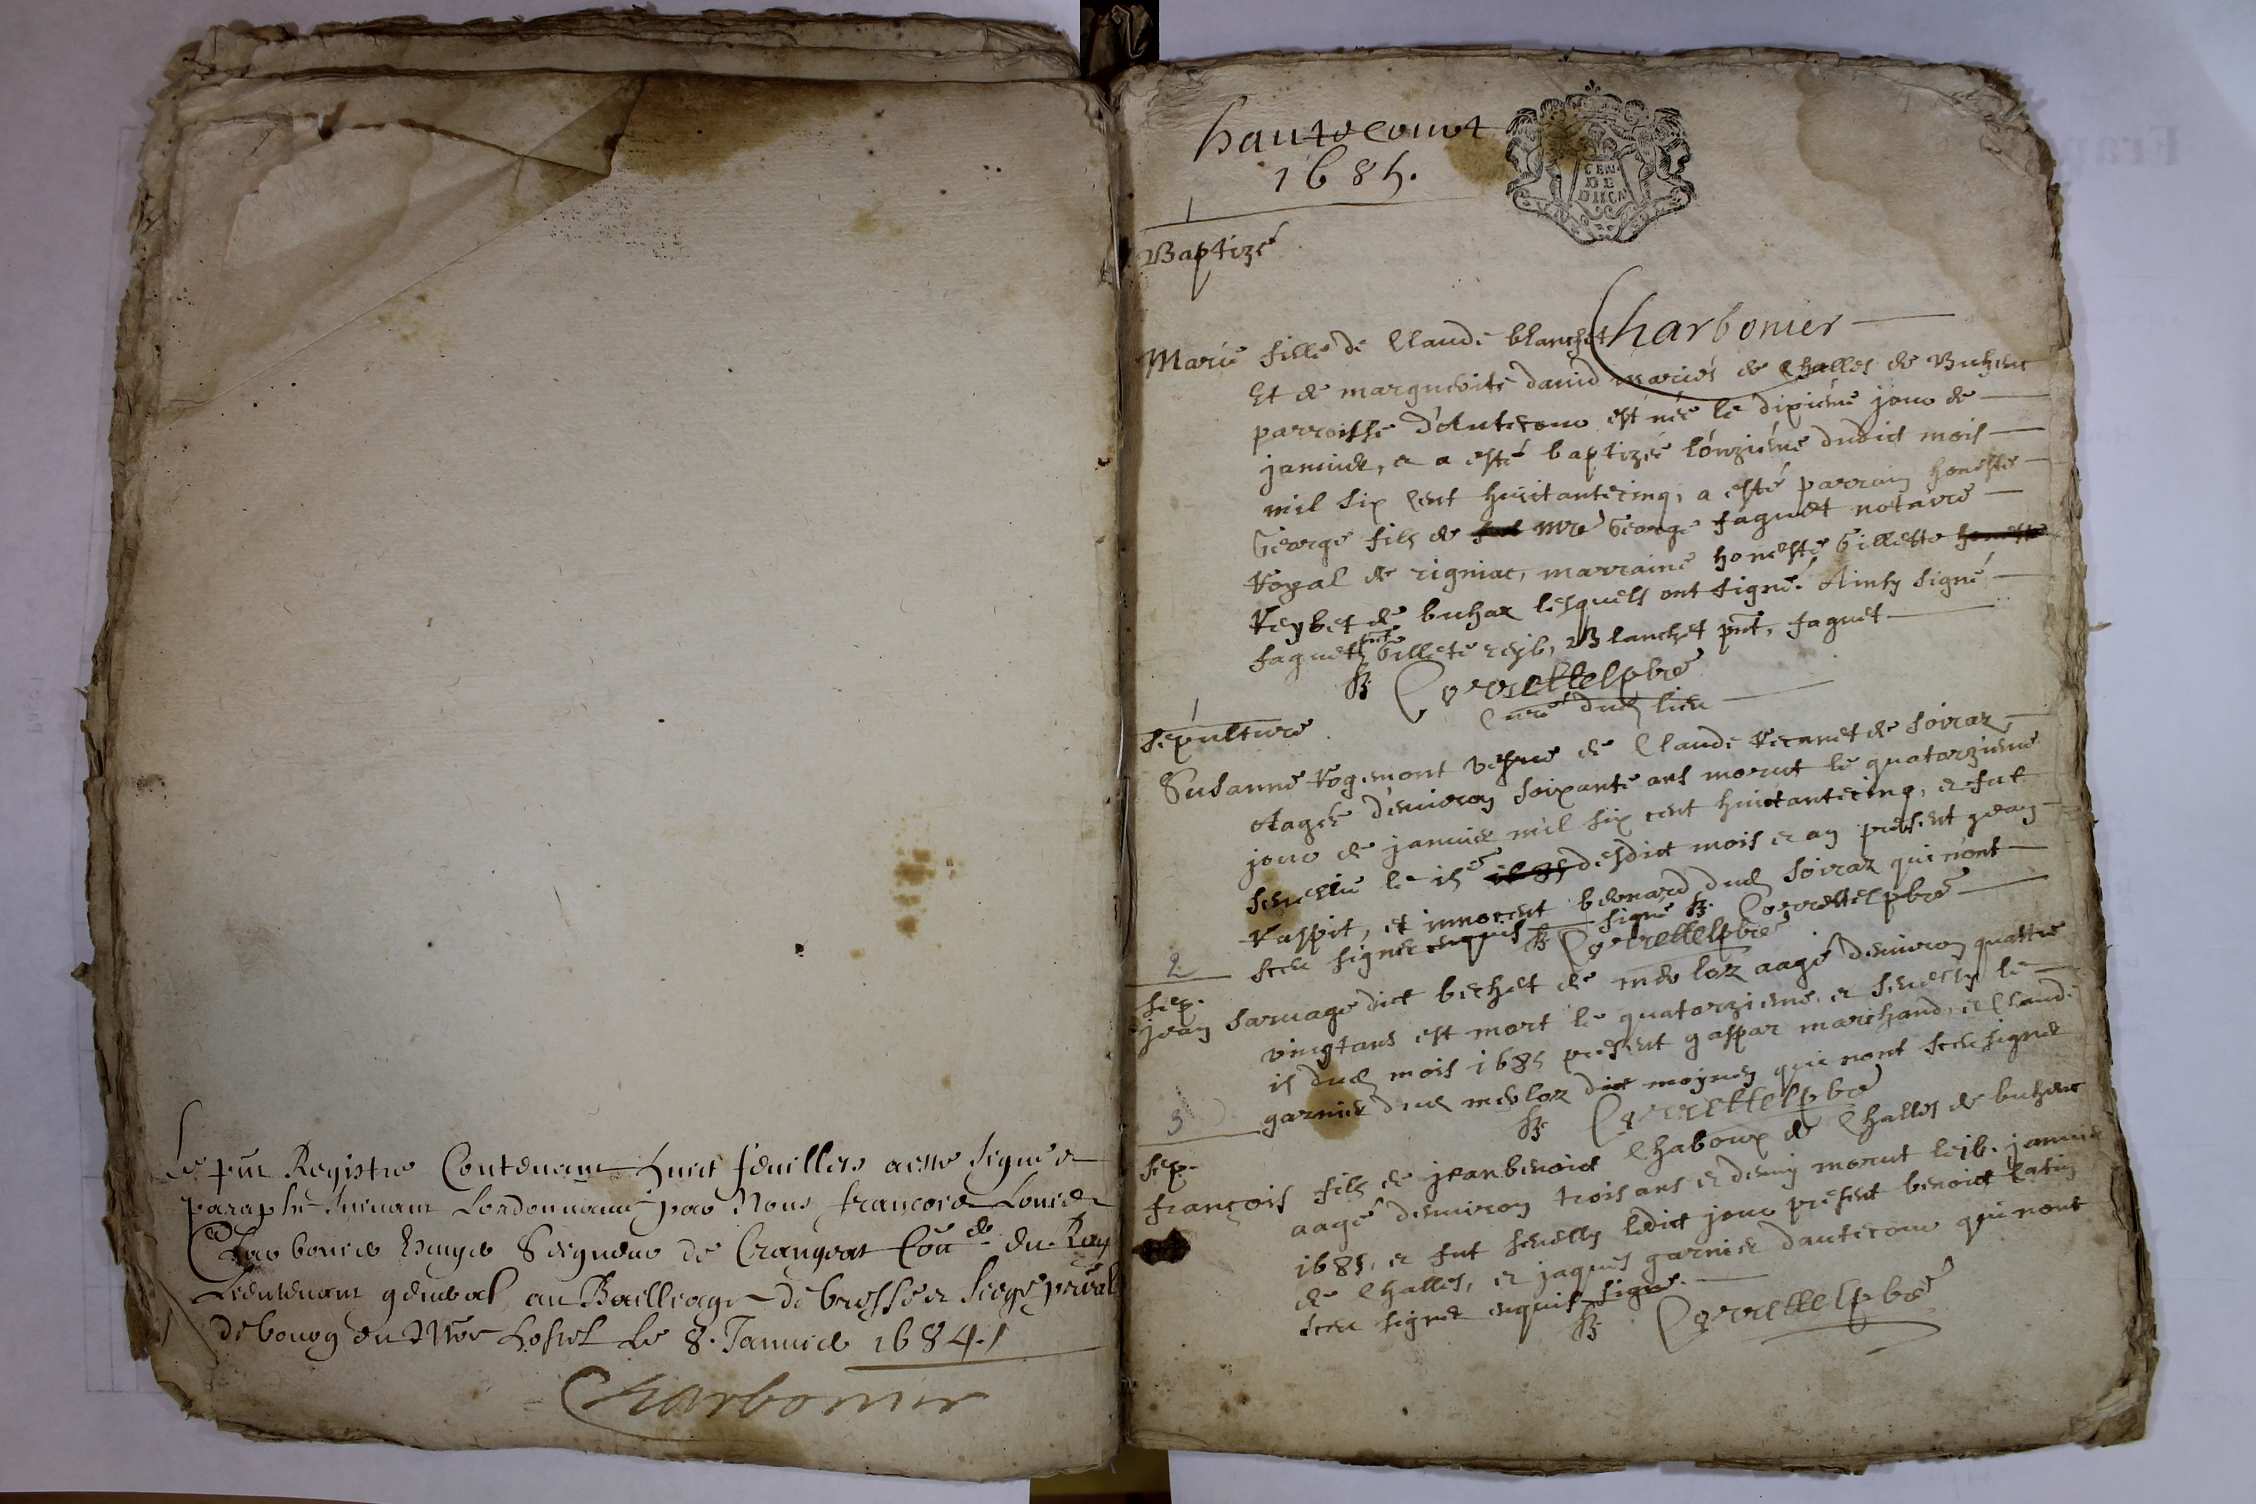 Le pnt Registre Contenant huict feuillers a esté signé et
paraphé suivant Lordonnance par Nous françois Louis
Charbonier Seigneur de Crangeat Con.er du Roy
Lieutenant general au Bailliage de bresse et siege pñal
de bourg en nre hostel le 8. Janvier 1684.
Charbonier
hautecourt
1685.
1
Baptizé
Charbonier
Marie fille de Claude blanchet
Et de marguerite david mariés de Challes de Buhenc
parroisse d'Autecour est née le dixiéme jour de
janvier, et a esté baptizée l'onziéme dudict mois
mil six cent huictantecinq, a esté parrain honeste
George fils de Mre George faguet notaire
Royal de rigniat, marraine honeste Gillette
Reybet de buhar lesquels ont signé. Ainsy signé
faguet, Gillete reyb, Blanchet pnt, faguet
Correttel pbre
Curé dud lieu
1
Sepulture
Susanne Rogemont vefve de Claude de Soiraz
Aagée d'environ soixante ans morut le quatorziéme
jour de janvier mil six cent huictantecinq, et fut
sevelie le 15e desdict mois et an présent jean
Raspit, et innocent bernard dud soiraz qui n'ont
sceu signer enquis signé Correttel pbre
Correttel pbre
2
Sep.
jean Sarvage dict bechet de merloz aagé denviron quattre
vingtans est mort le quatorziéme et sevelly le
15 dud mois 1685 présent gaspar marchand, et Claude
garnier dud merloz dict moynez qui nont sceu signer
Correttel pbre
3
Sep.
françois fils de jean benoict Chaboux de Challes de buhenc
aagé denviron trois ans et demy morut le 16. janvier
1685, et fut sevelly ledict jour présent benoict Catin
de Challes, et jaques garnier dautecour qui nont
sceu signer enquis signé.
Correttel pbre